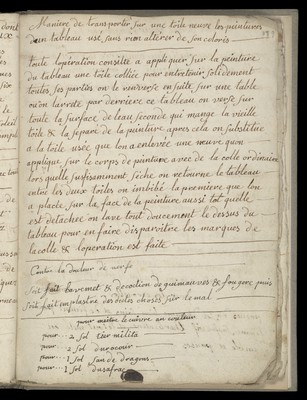 Maniere de transporter sur une toile neuve les peintures
d'un tableau usé sans rien altérer de son coloris
toute l'opération consiste a appliquer sur la peinture
du tableau une toile collée pour entretenir solidement
toutes ses parties on le renverse ensuite sur une table
ou on l'arrete par derriere ce tableau on verse sur
toute la surface de l'eau seconde qui mange la vieille
toile & la separe de la peinture apres cela on substitue
a la toile usée que l'on a enlevée une neuve qu'on
applique sur le corps de peinture avec de la colle ordinaire
lors quelle suffisamment sèche on retourne le tableau
entre les deux toiles on imbibe la premiere que l'on
a placée sur la face de la peinture aussi tot quelle
est detachée on lave tout doucement le dessus du
tableau pour en faire disparoitre les marques de
la colle & l'operation est faite
Contre la douleur de nerfs
Soit fait lavement & decoction de guimauves & fougere puis
Soit fait emplastre des dites choses sur le mal
pour mettre le cuivre en couleur
pour 2 sol ter mérita
pour 2 sol
pour 1 sol san de dragon
pour 1 sol du safran